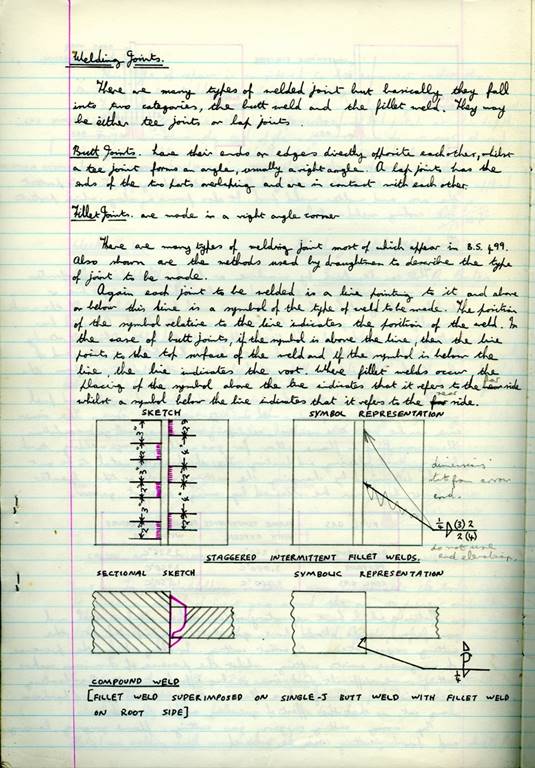 Welding Joints.
There are many types of welded joint but basically they fall
into two categories, the butt weld and the fillet weld. They may
be either tee joints or lap joints.
Butt Joints. have their ends or edges directly opposite each other, whilst
a tee joint forms an angle, usually a right angle. A lap joint has the
ends of the two parts overlaping and are in contact with each other.
Fillet Joints. are made in a right angle corner
There are many types of welding joint most of which appear in B.S. 499.
Also shown are the methods used by draughtmen to describe the type
of joint to be made.
Again each joint to be welded is a line pointing to it and above
or below this line is a symbol of the type of weld to be made. The position
of the symbol relative to the line indicates the position of the weld. In
the case of butt joints, if the symbol is above the line, then the line
points to the top surface of the weld and if the symbol is below the
line, the line indicates the root. Where fillet welds occur the
placing of the symbol above the line indicates that it refers to the side
whilst a symbol below the line indicates that it refers to the side.
SKETCH SYMBOL REPRESENTATION
2" 3" 2" 3" 2" 3"
2" 4" 2" 4" 2"
dimensions
from arrow
end.
1/4 (3) 2
2 (4)
do not use
STAGGERED INTERMITTENT FILLET WELDS.
SECTIONAL SKETCH SYMBOLIC REPRESENTATION
1/4
COMPOUND WELD
[FILLET WELD SUPERIMPOSED ON SINGLE-J BUTT WELD WITH FILLET WELD
ON ROOT SIDE]